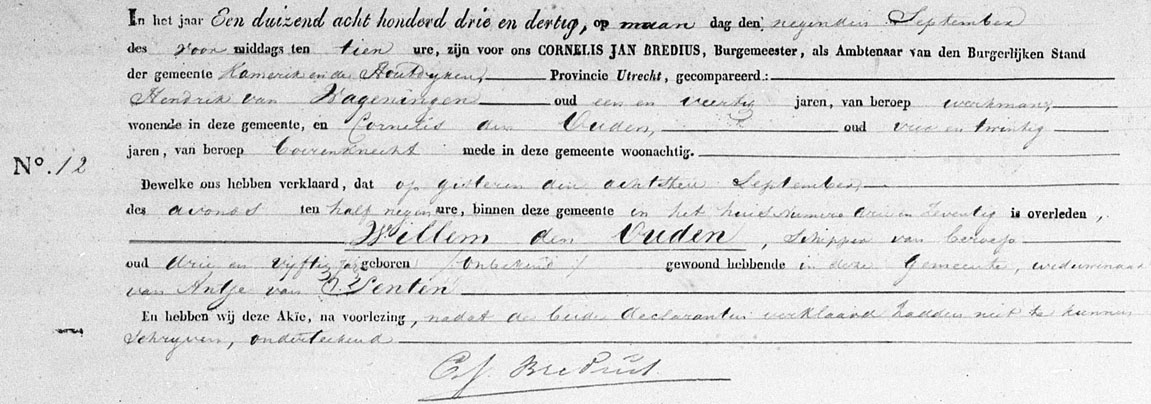 In het jaar Een duizend acht honderd drie en dertig, op maan dag den negenden September
des voor middags ten tien ure, zijn voor ons CORNELIS JAN BREDIUS, Burgemeester, als Ambtenaar van den Burgerlijken Stand
der gemeente Kamerik en de Houtdyken, Provincie Utrecht, gecompareerd.:
Hendrik van Wageningen oud een en veertig jaren, van beroep werkman,
wonende in deze gemeente, en Cornelis den Ouden, oud en twintig
No. 12
jaren, van beroep Boerenknecht mede in deze gemeente woonachtig.
Dewelke ons hebben verklaard, dat op gisteren den achtsten September
des avonds ten half negen ure, binnen deze gemeente in het huis Numero drie en Zeventig is overleden,
Willem den Ouden, Schipper van beroep
oud drie en vyftig jaar geboren (onbekend) gewoond hebbende in deze Gemeente, weduwnaar
van Antje van Penten
En hebben wij deze Akte, na voorlezing, nadat de beide declaranten verklaard hadden niet te kunnen
Schryven, onderteekend
C J Bredius